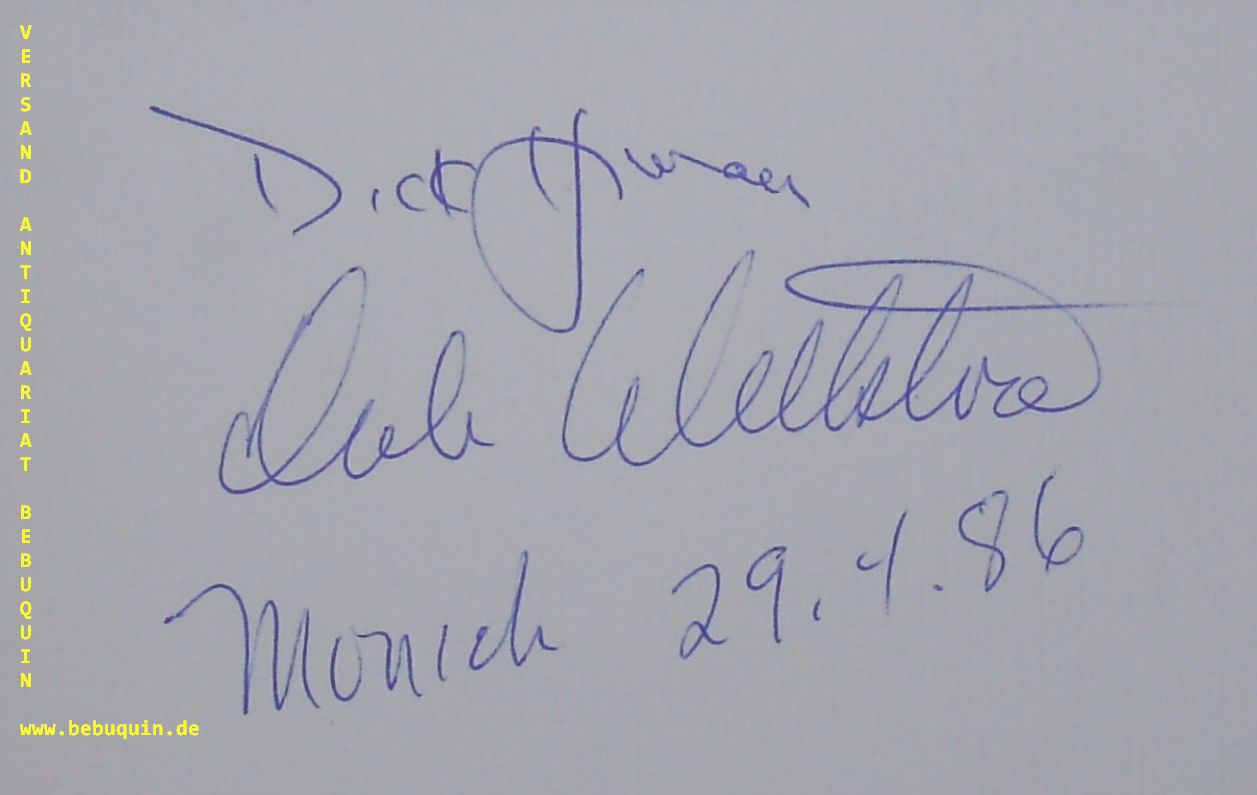 VERSAND ANTIQUARIAT BEBUQUIN
Dick Hyman
Dick Wellstood
Munich 29.4.86
www.bebuquin.de